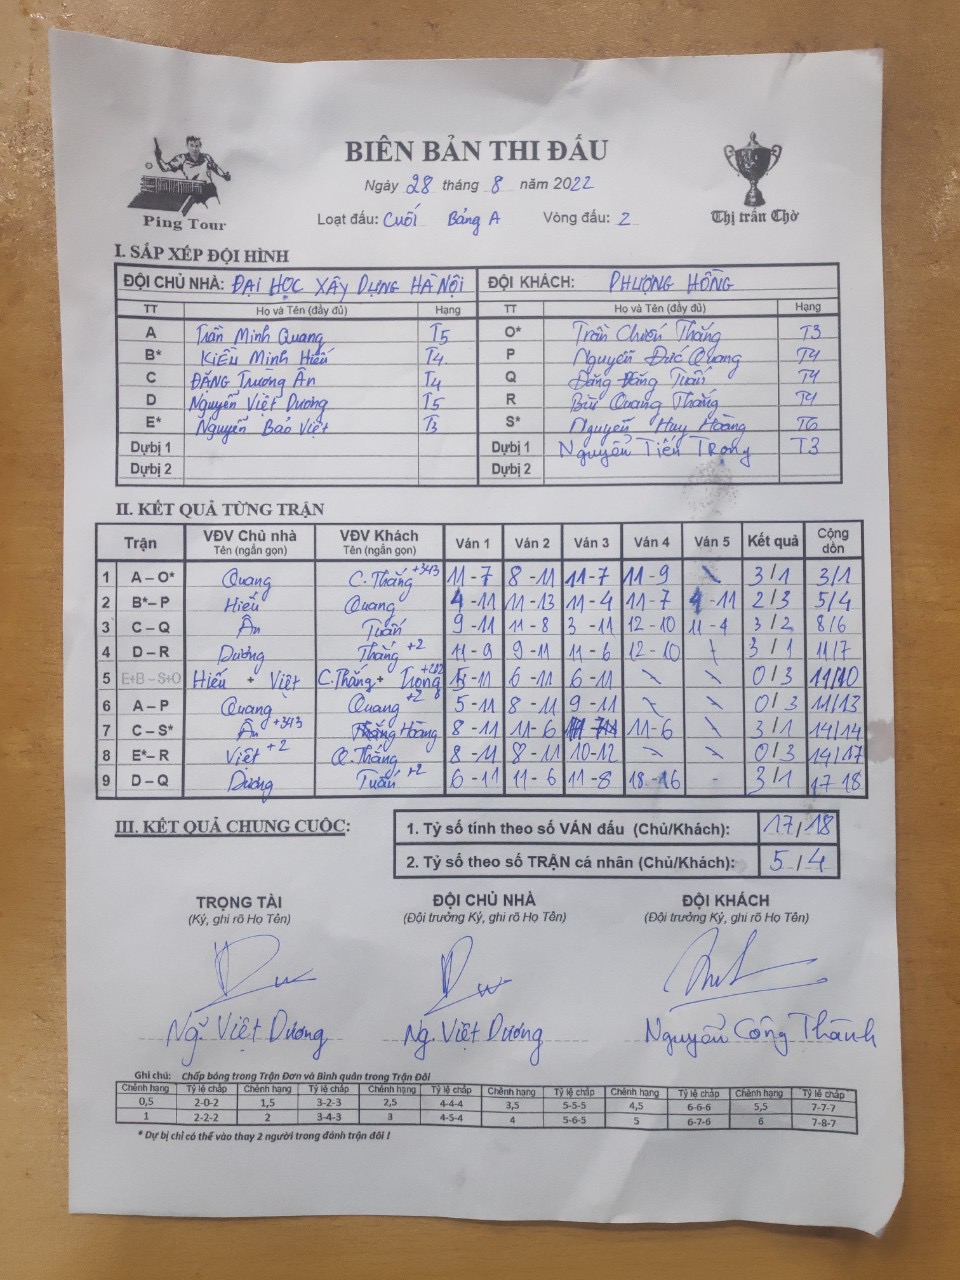 BIÊN BẢN THI ĐẤU
Ngày 28 tháng 8 năm 2022
Ping Tour
Loạt đấu: Cuối Bảng A Vòng đấu: 2
Thị trấn Chờ
I. SẮP XẾP ĐỘI HÌNH
ĐỘI CHỦ NHÀ: ĐẠI HỌC XÂY DỰNG HÀ NỘI ĐỘI KHÁCH: PHƯỢNG HỒNG
TT Họ và Tên (đầy đủ) Hạng TT Họ và Tên (đầy đủ) Hạng
A Trần Minh Quang T5 O* Trần Chiến Thắng T3
B* Kiều Minh Hiếu T4 P Nguyễn Đức Quang T4
C ĐẶNG Trường Ân T4 Q Đăng Tuấn T4
D Nguyễn Việt Dương T5 R Bùi Quang Thắng T4
E* Nguyễn Bảo Việt T3 S* Nguyễn Huy Hoàng T6
Dự bị 1 Dự bị 1 Nguyễn Tiến Trọng T3
Dự bị 2 Dự bị 2
II. KẾT QUẢ TỪNG TRẬN
Trận VĐV Chủ nhà Tên (ngắn gọn) VĐV Khách Tên (ngắn gọn) Ván 1 Ván 2 Ván 3 Ván 4 Ván 5 Kết quả Cộng dồn
1 A – O* Quang C.Thắng +343 11-7 8-11 11-7 11-9 \ 3/1 3/1
2 B* – P Hiếu Quang 4-11 11-13 11-4 11-7 4-11 2/3 5/4
3 C – Q Ân Tuấn 9-11 11-8 3-11 12-10 11-4 3/2 8/6
4 D – R Dương Thắng +2 11-9 9-11 11-6 12-10 \ 3/1 11/7
5 E+B – S+O Hiếu + Việt C.Thắng + Trọng 5-11 6-11 6-11 \ \ 0/3 11/10
6 A – P Quang Quang +2 5-11 8-11 9-11 \ \ 0/3 11/13
7 C – S* Ân +343 Hoàng 8-11 11-6 11-6 \ 3/1 14/14
8 E* – R Việt +2 Q.Thắng 8-11 8-11 10-12 \ \ 0/3 14/17
9 D – Q Dương Tuấn +2 6-11 11-6 11-8 18-16 - 3/1 17-18
III. KẾT QUẢ CHUNG CUỘC:
1. Tỷ số tính theo số VÁN đấu (Chủ/Khách): 17/18
2. Tỷ số theo số TRẬN cá nhân (Chủ/Khách): 5/4
TRỌNG TÀI ĐỘI CHỦ NHÀ ĐỘI KHÁCH
(Ký, ghi rõ Họ Tên) (Đội trưởng Ký, ghi rõ Họ Tên) (Đội trưởng Ký, ghi rõ Họ Tên)
Ng. Việt Dương Ng. Việt Dương Nguyễn Công Thành
Ghi chú: Chấp bóng trong Trận Đơn và Bình quân trong Trận Đôi
Chênh hạng Tỷ lệ chấp Chênh hạng Tỷ lệ chấp Chênh hạng Tỷ lệ chấp Chênh hạng Tỷ lệ chấp Chênh hạng Tỷ lệ chấp Chênh hạng Tỷ lệ chấp
0,5 2-0-2 1,5 3-2-3 2,5 4-4-4 3,5 5-5-5 4,5 6-6-6 5,5 7-7-7
1 2-2-2 2 3-4-3 3 4-5-4 4 5-6-5 5 6-7-6 6 7-8-7
* Dự bị chỉ có thể vào thay 2 người trong đánh trận đôi !